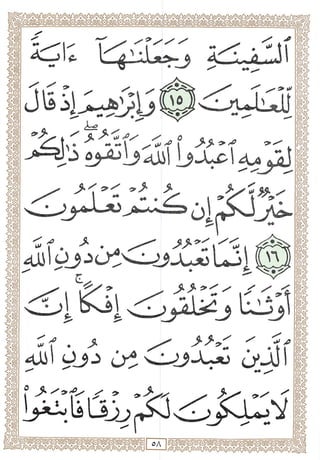 ٱلسَّفِينَةِ وَجَعَلْنَٰهَآ ءَايَةً
لِّلْعَٰلَمِينَ ١٥ وَإِبْرَٰهِيمَ إِذْ قَالَ
لِقَوْمِهِ ٱعْبُدُوا۟ ٱللَّهَ وَٱتَّقُوهُ ۖ ذَٰلِكُمْ
خَيْرٌ لَّكُمْ إِن كُنتُمْ تَعْلَمُونَ
١٦ إِنَّمَا تَعْبُدُونَ مِن دُونِ ٱللَّهِ
أَوْثَٰنًا وَتَخْلُقُونَ إِفْكًا ۚ إِنَّ
ٱلَّذِينَ تَعْبُدُونَ مِن دُونِ ٱللَّهِ
لَا يَمْلِكُونَ لَكُمْ رِزْقًا فَٱبْتَغُوا۟
٥٨